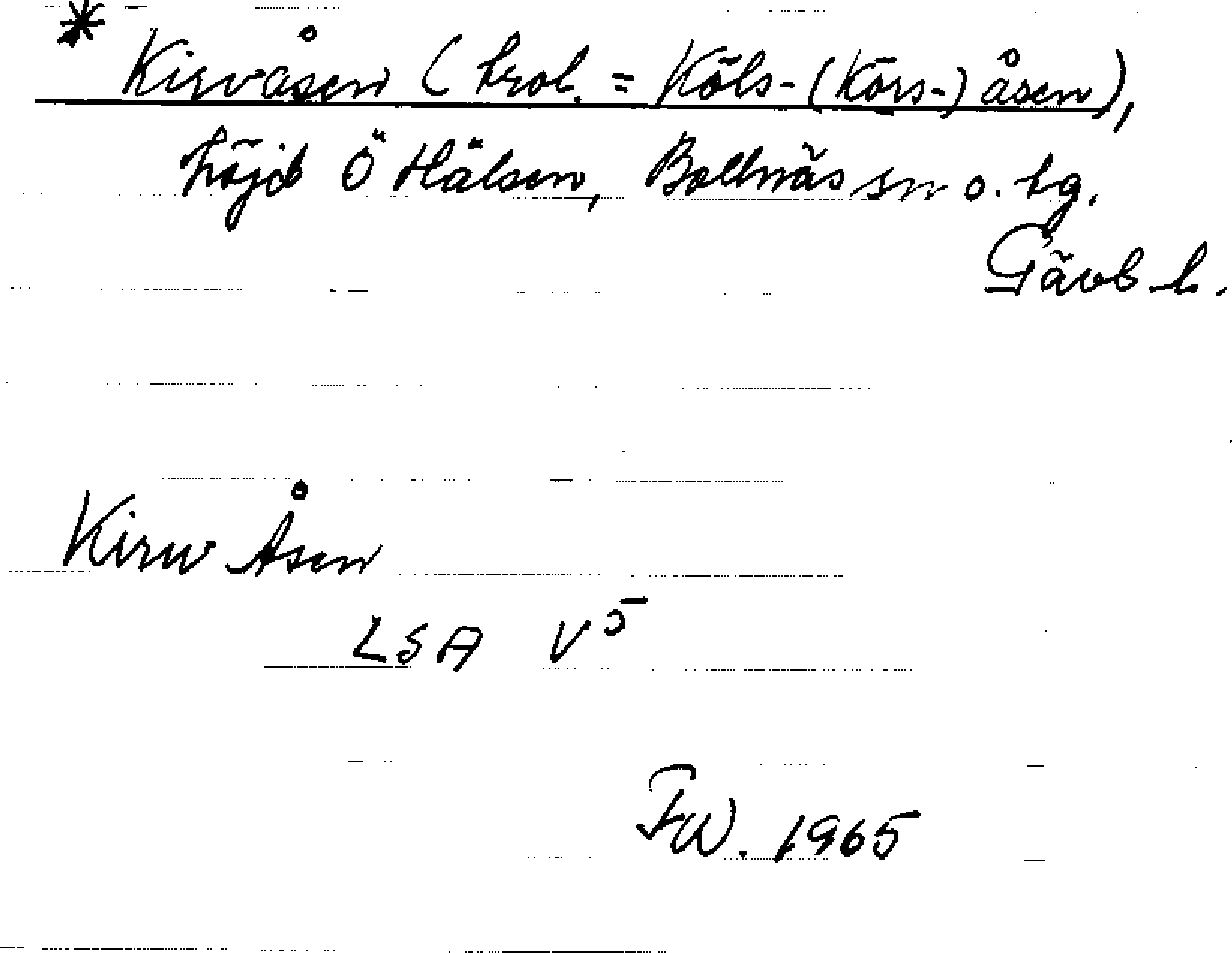 * Kirvåsen (trol. = Köls- (Körs-) åsen),
höjd Ö Hälsen, Bollnäs sn o. tg.
Gävb l.
Kirw Åsen
LSA V5
FW. 1965